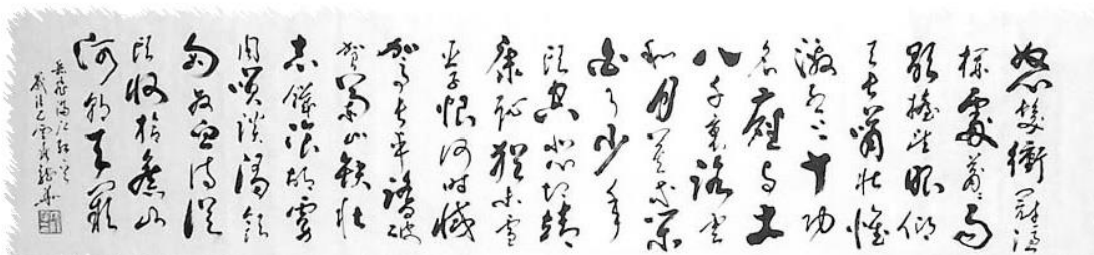 怒髮衝冠憑
欄處蕭蕭雨
歇擡望眼仰
天長嘯壯懷
激烈三十功
名塵與土
八千里路雲
和月莫等閒
白了少年
頭空悲切靖
康恥猶未雪
臣子恨何時滅
駕長車踏破
賀蘭山缺壯
志饑餐胡虜
肉笑談渴飲
匈奴血待從
頭收拾舊山
河朝天闕
岳飛滿江紅